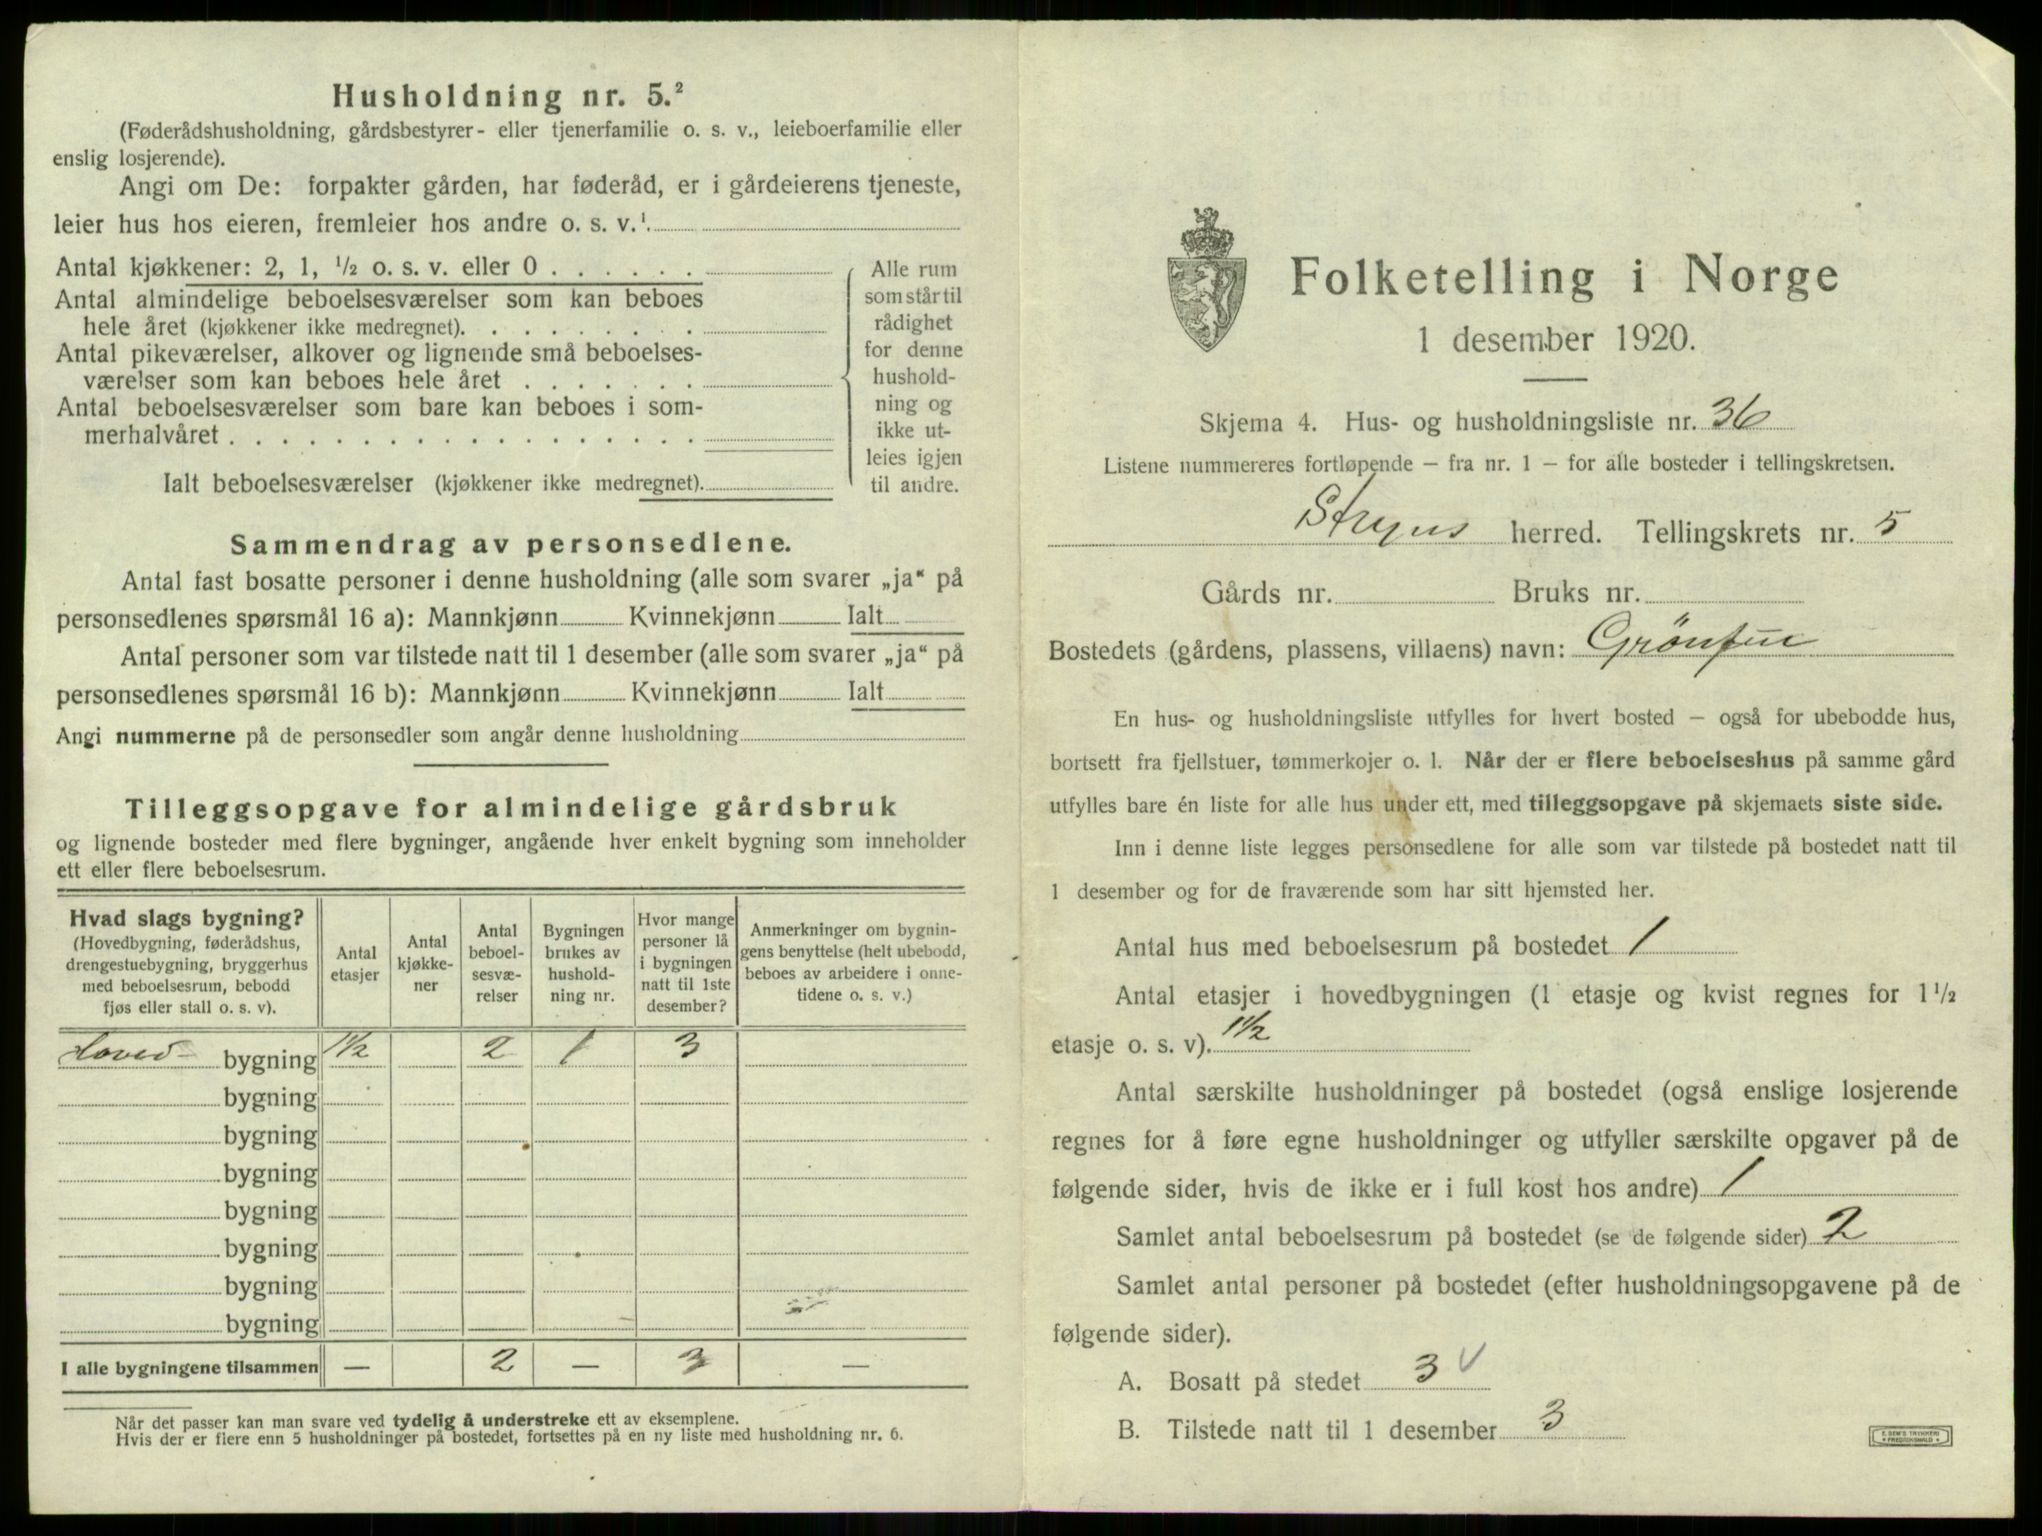 Husholdning nr. 5.²
(Føderådshusholdning, gårdsbestyrer- eller tjenerfamilie o. s. v., leieboerfamilie eller
enslig losjerende).
Angi om De: forpakter gården, har føderåd, er i gårdeierens tjeneste,
leier hus hos eieren, fremleier hos andre o. s. v.¹
Antal kjøkkener: 2, 1, ½ o. s. v. eller 0 . . . . . .
Antal almindelige beboelsesværelser som kan beboes
hele året (kjøkkener ikke medregnet). . . . . . . . .
Antal pikeværelser, alkover og lignende små beboelses-
værelser som kan beboes hele året . . . . . . .
Antal beboelsesværelser som bare kan beboes i som-
merhalvåret . . . . . . . . . . . . . . . . . .
Ialt beboelsesværelser (kjøkkener ikke medregnet).
Alle rum
som står til
rådighet
for denne
hushold-
ning og
ikke ut-
leies igjen
til andre.
Sammendrag av personsedlene.
Antal fast bosatte personer i denne husholdning (alle som svarer „ja“ på
personsedlenes spørsmål 16 a): Mannkjønn Kvinnekjønn Ialt
Antal personer som var tilstede natt til 1 desember (alle som svarer „ja“ på
personsedlenes spørsmål 16 b): Mannkjønn Kvinnekjønn Ialt
Angi nummerne på de personsedler som angår denne husholdning
Tilleggsopgave for almindelige gårdsbruk
og lignende bosteder med flere bygninger, angående hver enkelt bygning som inneholder
ett eller flere beboelsesrum.
Hvad slags bygning?
(Hovedbygning, føderådshus,
drengestuebygning, bryggerhus
med beboelsesrum, bebodd
fjøs eller stall o. s. v).
Antal
etasjer
Antal
kjøkke-
ner
Antal
beboel-
sesvæ-
relser
Bygningen
brukes av
hushold-
ning nr.
Hvor mange
personer lå
i bygningen
natt til 1ste
desember?
Anmerkninger om bygnin-
gens benyttelse (helt ubebodd,
beboes av arbeidere i onne-
tidene o. s. v.)
Hoved- bygning 1½ 2 1 3
bygning
bygning
bygning
bygning
bygning
bygning
bygning
I alle bygningene tilsammen — 2 — 3 —
Når det passer kan man svare ved tydelig å understreke ett av eksemplene.
Hvis der er flere enn 5 husholdninger på bostedet, fortsettes på en ny liste med husholdning nr. 6.
Folketelling i Norge
1 desember 1920.
Skjema 4. Hus- og husholdningsliste nr. 36
Listene nummereres fortløpende – fra nr. 1 – for alle bosteder i tellingskretsen.
Stryns herred. Tellingskrets nr. 5
Gårds nr. Bruks nr.
Bostedets (gårdens, plassens, villaens) navn:
En hus- og husholdningsliste utfylles for hvert bosted – også for ubebodde hus,
bortsett fra fjellstuer, tømmerkojer o. l. Når der er flere beboelseshus på samme gård
utfylles bare én liste for alle hus under ett, med tilleggsopgave på skjemaets siste side.
Inn i denne liste legges personsedlene for alle som var tilstede på bostedet natt til
1 desember og for de fraværende som har sitt hjemsted her.
Antal hus med beboelsesrum på bostedet 1
Antal etasjer i hovedbygningen (1 etasje og kvist regnes for 1½
etasje o. s. v). 1½
Antal særskilte husholdninger på bostedet (også enslige losjerende
regnes for å føre egne husholdninger og utfyller særskilte opgaver på de
følgende sider, hvis de ikke er i full kost hos andre) 1
Samlet antal beboelsesrum på bostedet (se de følgende sider) 2
Samlet antal personer på bostedet (efter husholdningsopgavene på de
følgende sider).
A. Bosatt på stedet 3 √
B. Tilstede natt til 1 desember 3
E. SEM'S TRYKKERI
FREDRIKSHALD